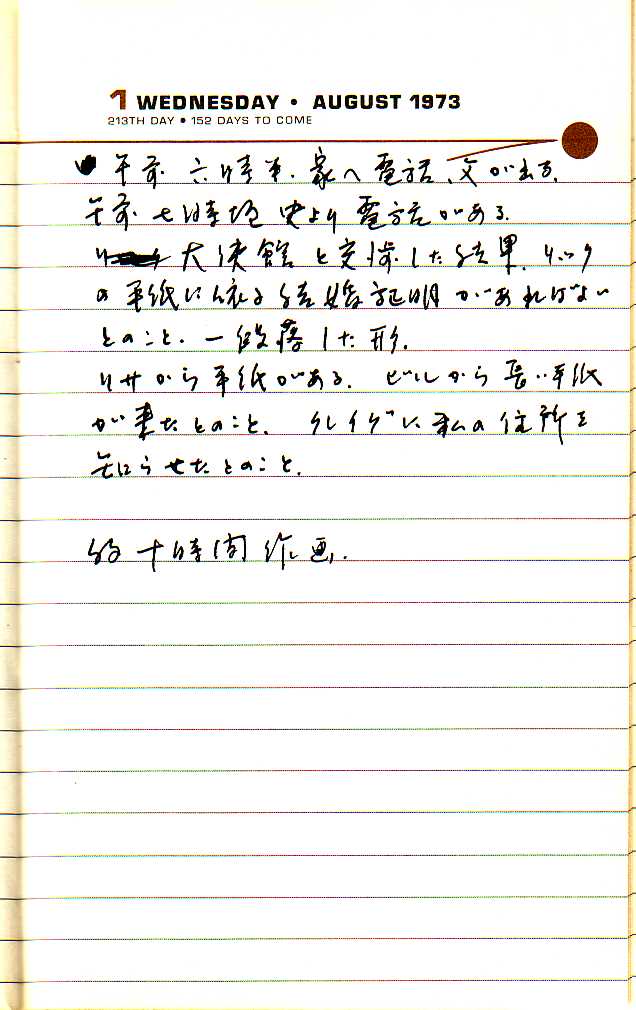 1 WEDNESDAY • AUGUST 1973
213TH DAY • 152 DAYS TO COME
午前 六時半. 家へ電話、父が出る.
午前 七時頃 史より 電話がある.
大使館と交渉した結果、リック
の手紙に依る結婚証明があればよい
とのこと. 一段落した形.
リサから手紙がある. ビルから長い手紙
が来たとのこと. クレイグに私の住所を
知らせたとのこと.
約十時間作画.